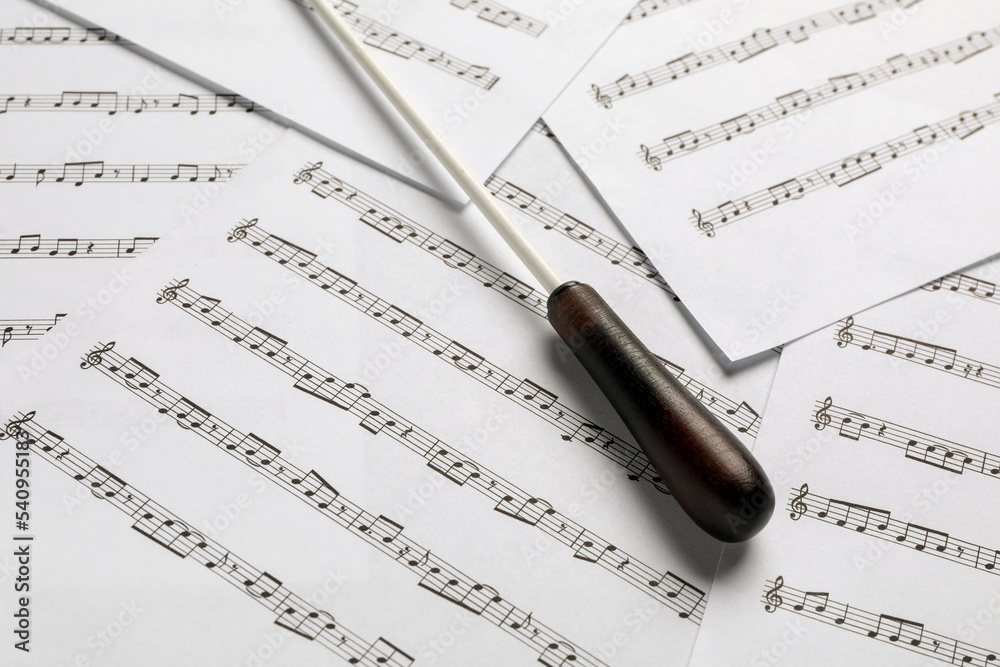 Adobe Stock | #540955183